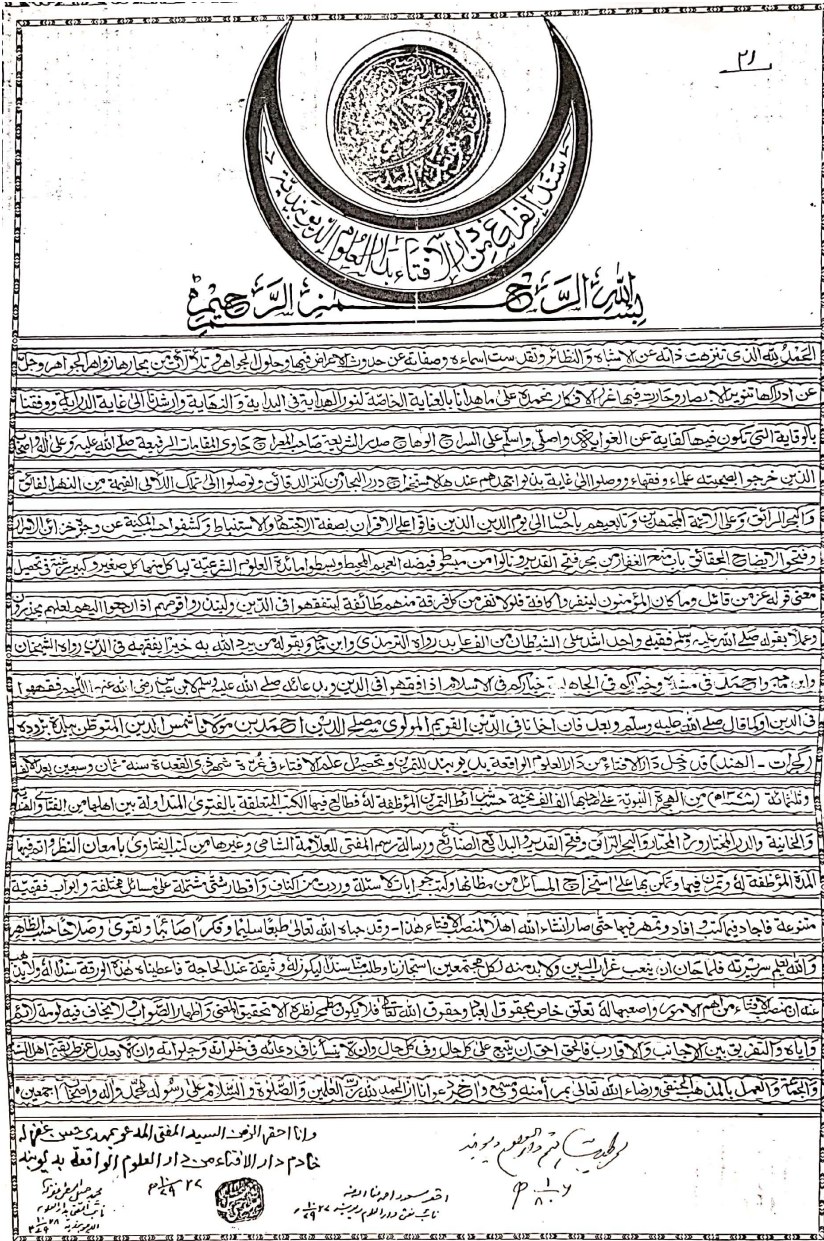 ۲۱
سند الفراغ من دار الافتاء بدار العلوم الديوبندية
بسم الله الرحمن الرحيم
الحمد لله الذى تنزهت ذاته عن الاشباه والنظائر وتقدست اسماءه وصفاته عن حدوث الاعراض فيها وحلول الجواهر و من بحارها زواهر الجواهر وجل
عن ادراكها تنوير الابصار وحارت فيها غرر الافكار نحمده على ما هدانا بالعناية الخاصة لنور الهداية فى البداية والنهاية وارشدنا الى غاية الدراية ووفقنا
بالوقاية التى تكون فيها كفاية عن الغواية واصلى واسلم على السراج الوهاج صدر الشريعة صاحب المعراج حاوى المقامات الرفيعة صلى الله عليه وعلى اله واصحابه
الذين خرجوا بصحبته علماء وفقهاء ووصلوا الى غاية بذلوا جهدهم عندها لاستخراج درر البحار من كنز الدقائق وتوصلوا الى تلك اللآلى القيمة من النهر الفائق
والبحر الرائق وعلى الائمة المجتهدين وتابعيهم باحسان الى يوم الدين الذين فاقوا على الاقران بصفة الاجتهاد والاستنباط وكشفوا عن وجوه خزائن الاسرار
وفتحوا لايضاح الحقائق باب منح الغفار من بحر فتح القدير ونالوا من مبسوط فيضه العميم المحيط وبسطوا مائدة العلوم الشرعية لياكل منها كل صغير وكبير فى تحصيل
معنى قوله عز من قائل وما كان المؤمنون لينفروا كافة فلولا نفر من كل فرقة منهم طائفة ليتفقهوا فى الدين ولينذروا قومهم اذا رجعوا اليهم لعلهم يحذرون
وعملا بقوله صلى الله عليه وسلم فقيه واحد اشد على الشيطان من الف عابد رواه الترمذى وابن ماجه وبقوله من يرد الله به خيرا يفقهه فى الدين رواه الشيخان
وابن ماجه واحمد فى مسنده وخياركم فى الجاهلية خياركم فى الاسلام اذا فقهوا فى الدين وبدعائه صلى الله عليه وسلم لابن عباس رضى الله عنه اللهم فقهه
فى الدين اوكما قال صلى الله عليه وسلم وبعد فان اخانا فى الدين القويم المولوى مصلح الدين احمد بن مولانا شمس الدين المتوطن ببلدة بڑوده
(گجرات - الهند) قد دخل دار الافتاء من دار العلوم الواقعة بديوبند للتمرن وتحصيل علم الافتاء فى غرة شهر ذى القعدة سنة ثمان وسبعين بعد الالف
وثلثمائة (۱۳۷۸ھ) من الهجرة النبوية على صاحبها الف الف تحية حسب شرائط التمرن المؤظفة له فطالع فيها الكتب المتعلقة بالفتوى المتداولة بين اهلها من الفتاوى
والخانية والدر المختار ورد المحتار والبحر الرائق وفتح القدير والبدائع الصنائع ورسالة رسم المفتى للعلامة الشامى وغيرها من كتب الفتاوى بامعان النظر فيها
المدة المؤظفة له وتمرن فيها وتمكن بها على استخراج المسائل من مظانها وكتب جوابات الاسئلة وردت من اكناف واقطار شتى مشتملة على مسائل مختلفة وابواب فقهية
متنوعة فاجاد فيما كتب وافاد وتمهر فيها حتى صار انشاء الله اهلا لمنصب الافتاء هذا - وقد حباه الله تعالى طبعا سليما وفكرا صائبا وتقوى وصلاحا حسب الظاهر
والله العليم سريرته فلما حان ان ينعب غراب البين ولابد منه لكل مجتمعين استجازنا وطلب منا سندا ليكون له وثيقة عند الحاجة فاعطيناه هذه الورقة سندا له
عنه ان منصب الافتاء من اهم الامور واصعبها له تعلق خاص بحقوق العباد وحقوق الله تعالى فلا يكون مطمح نظره الا تحقيق المفتى واظهار الصواب ولا يخاف فيه لومة لائم
واياه والتفريق بين الاجانب والاقارب فالحق احق ان يتبع على كل حال وفى كل حال وان لا ينسانا فى دعائه فى خلواته وجلواته وان لا يعدل عن طريقة اهل السنة
والجماعة والعمل بالمذهب الحنفى ورضاء الله تعالى بمرأى منه ومسمع واخر دعوانا ان الحمد لله رب العلمين والصلوة والسلام على رسوله محمد واله واصحابه اجمعين
وانا احقر الزمن السيد المفتى المدعو بمهدى حسن غفر له
خادم دار الافتاء من دار العلوم الواقعة بديوبند